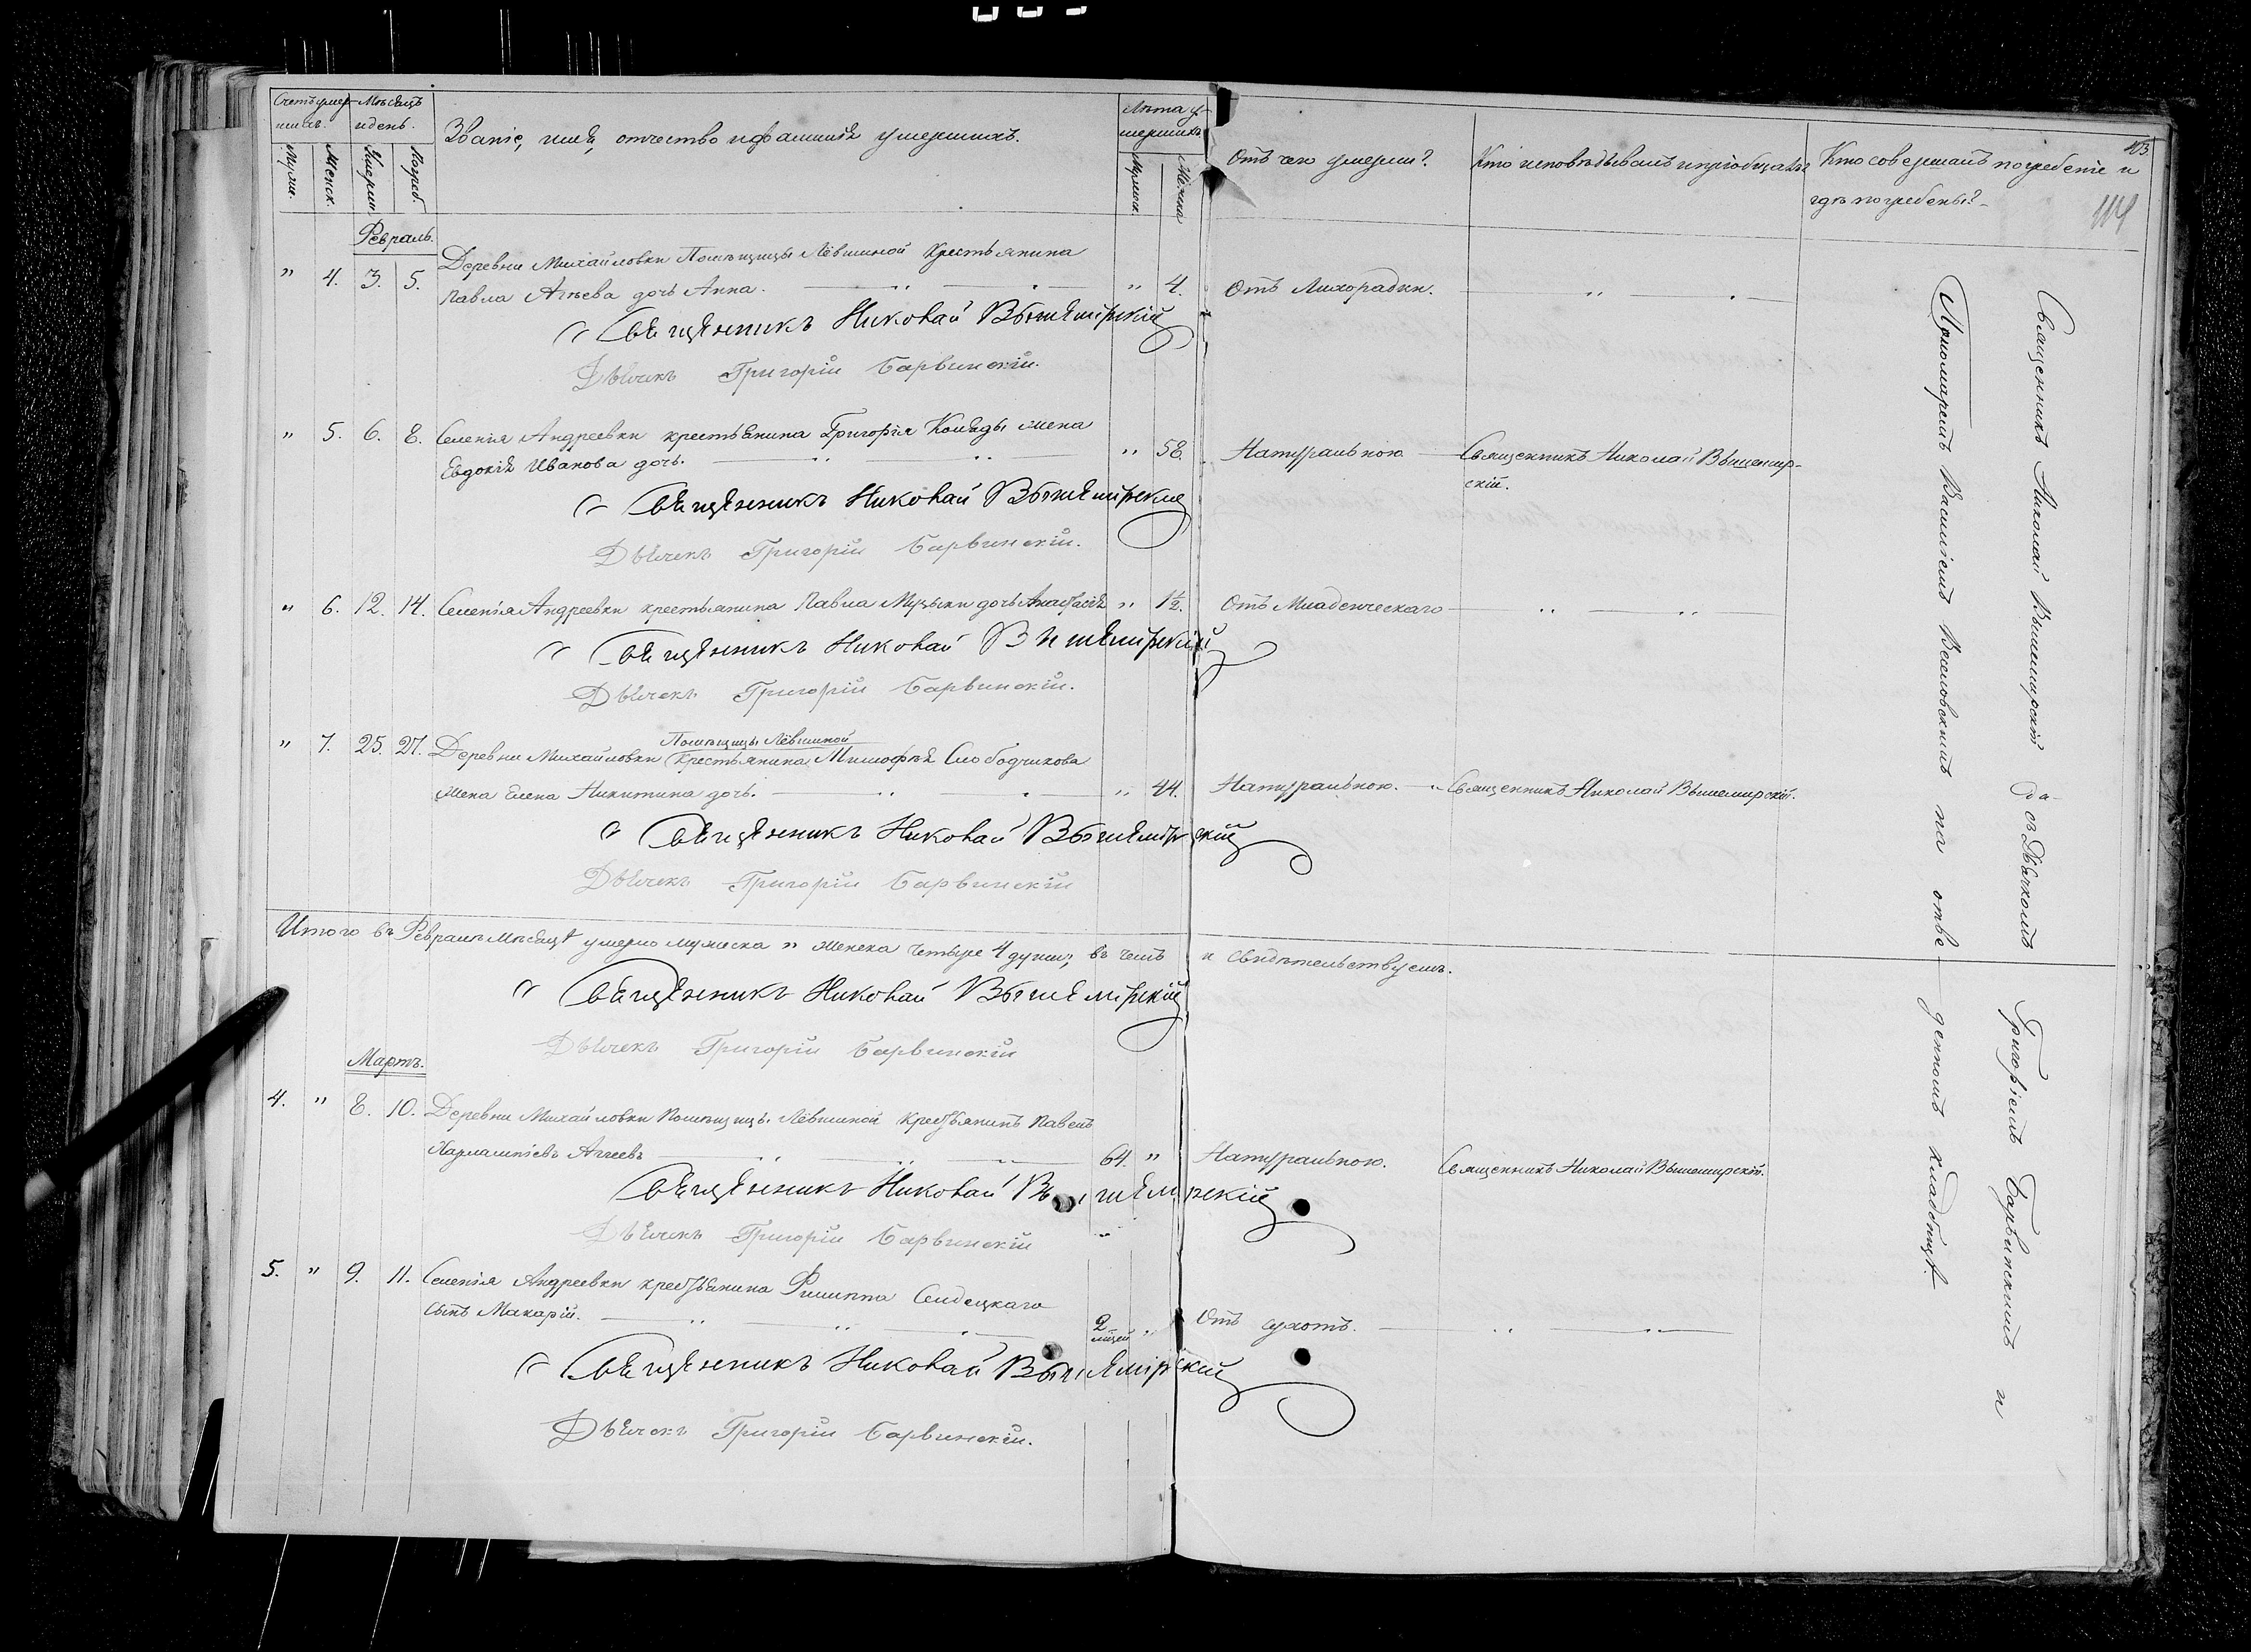 Счетъ умер-
шихъ.
Мѣсяцъ
и день.
Званіе, имя, отчество и фамилія умершихъ.
Лѣта у-
мершихъ
Отъ чего умерли?
Кто исповѣдывалъ и пріобщалъ?
Кто совершалъ погребеніе и
гдѣ погребены?
Мужс.
Женск.
Умерш.
Погреб.
Мужеск.
Женска
103
114
Февраль.
Деревни Михайловки Помѣщицы Лёвшиной Крестьянина
" 4. 3. 5. Павла Агѣева дочь Анна. " 4. Отъ Лихорадки.
Священникъ Николай Вышемірскій
Дьячекъ Григорій Барвинскій.
" 5. 6. 8. Селенія Андреевки крестьянина Григорія Коляды жена
Евдокія Иванова дочь. " 58. Натуральною Священникъ Николай Вышемир-
скій.
Священникъ Николай Вышемірскій
Дьячекъ Григорій Барвинскій.
" 6. 12. 14. Селенія Андреевки крестьянина Павла Музыки дочь Анастасія " 1½. Отъ Младенческаго
Священникъ Николай Вишемірскій
Дьячекъ Григорій Барвинскій.
Помѣщицы Лёвшиной
" 7. 25. 27. Деревни Михайловки Крестьянина Тимофѣя Слободчикова
жена Елена Никитина дочь. " 44. Натуральною. Священникъ Николай Вышемирскій.
Священникъ Николай Вышемірскій
Дьячекъ Григорій Барвинскій
Итого въ Февралѣ Мѣсяцѣ умерло мужеска " женска четыре 4 души; въ чемъ и свидѣтельствуемъ.
Священникъ Николай Вышемирскій
Дьячекъ Григорій Барвинскій
Мартъ.
4. " 8. 10. Деревни Михайловки Помѣщицы Лёвшиной Крестьянинъ Павелъ
Харлампіевъ Агѣевъ 64. " Натуральною. Священникъ Николай Вышемирскій.
Священникъ Николай Вышемирскій
Дьячекъ Григорій Барвинскій
5. " 9. 11. Селенія Андреевки крестьянина Филиппа Сендецкаго
сынъ Макарій. 2 мѣсец. " Отъ сухотъ.
Священникъ Николай Вышемірскій
Дьячекъ Григорій Барвинскій.
Священникъ Николай Вышемирскій со Дьячкомъ Григоріемъ Барвинскимъ и
Протоіереемъ Василіемъ на отве- денномъ кладбищѣ.